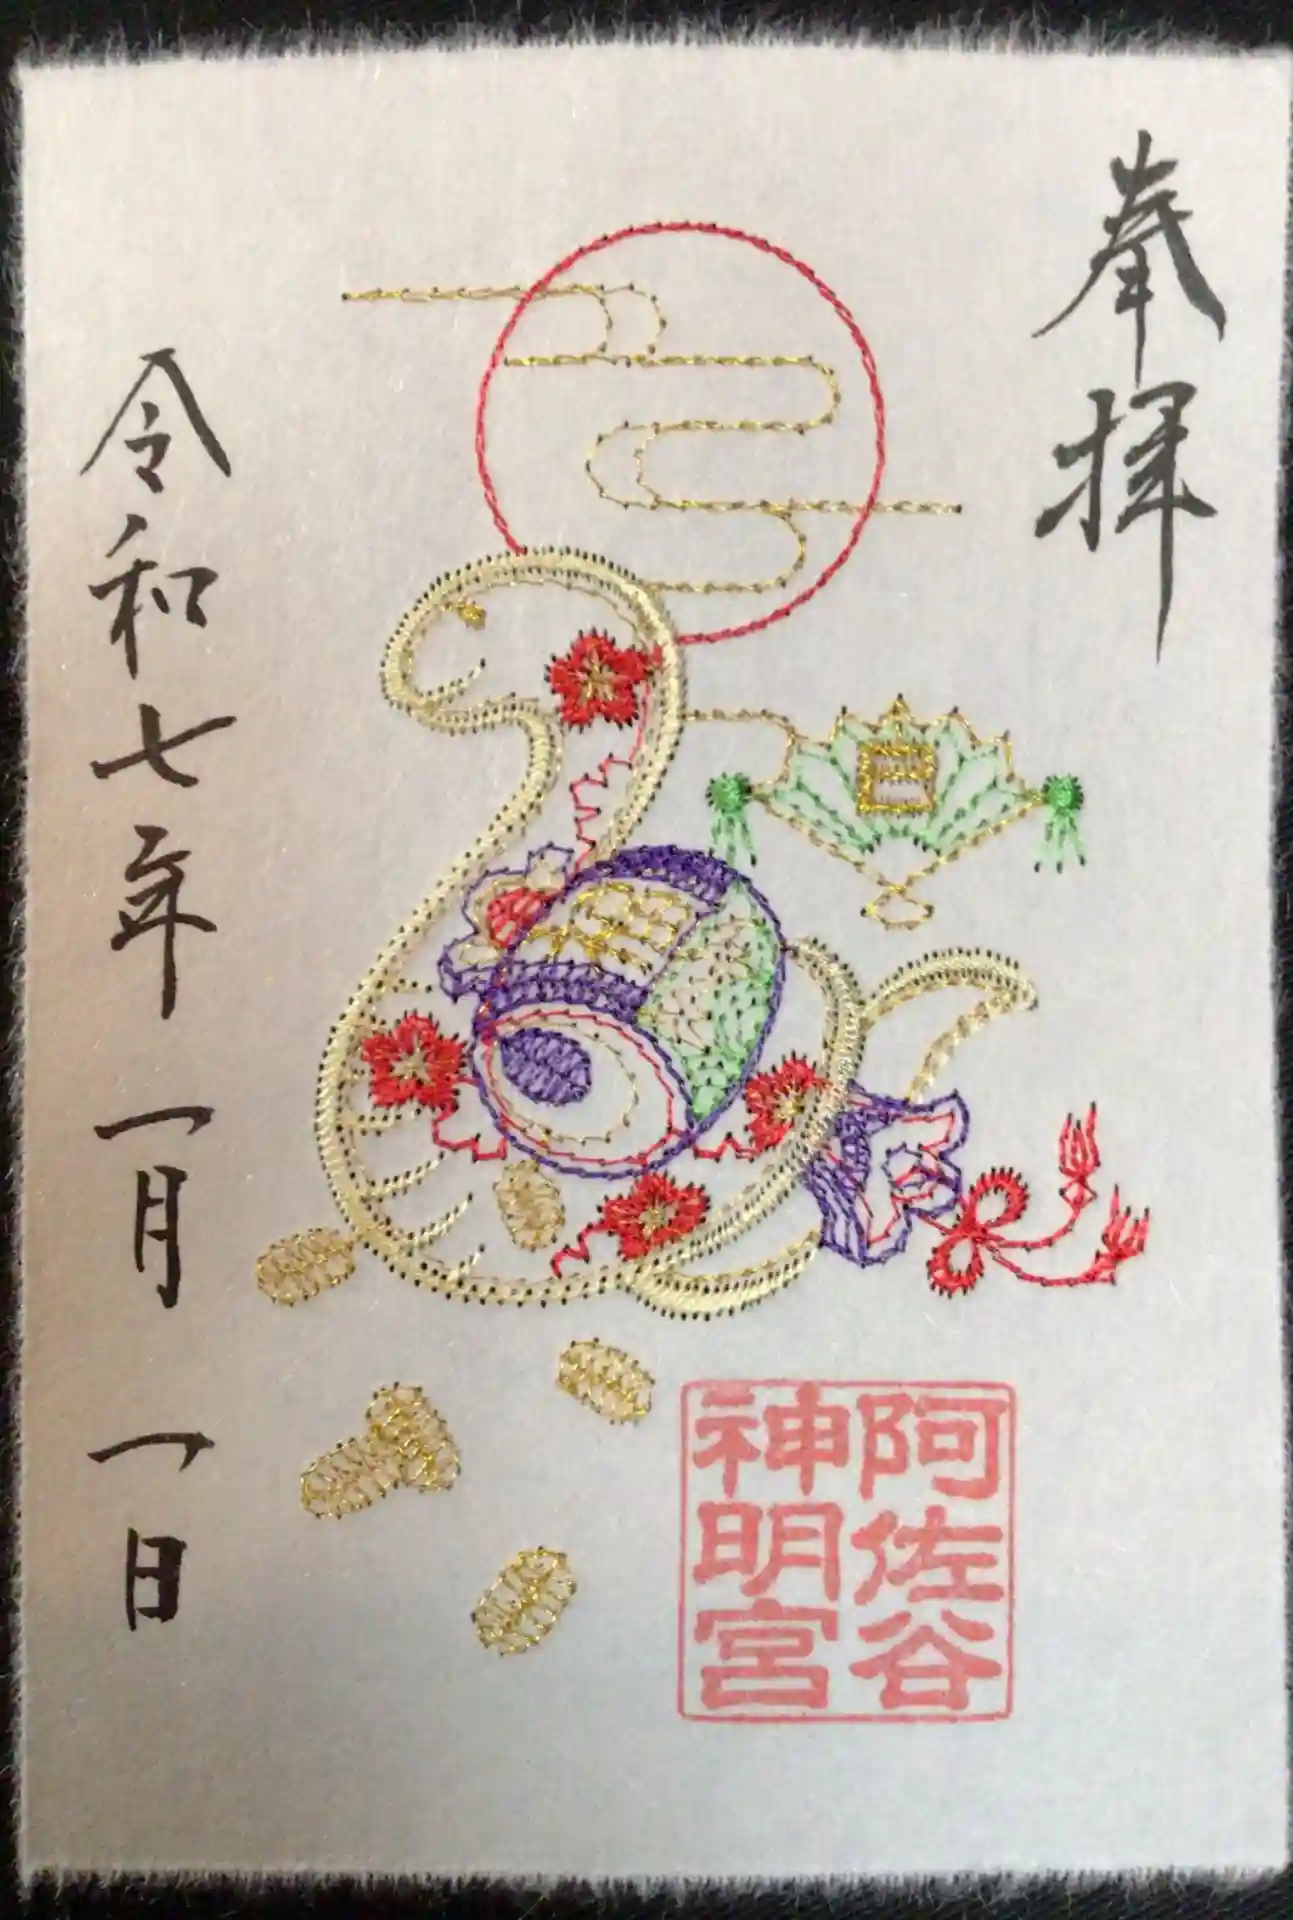 奉拝
令和七年一月一日
阿佐谷
神明宮